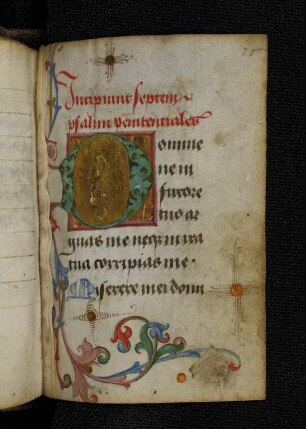 25
Incipiunt septem
psalmi penitentiales
Domine
ne in
furore
tuo ar
guas me neqz in ira
tua corripias me ·
Miserere mei domi